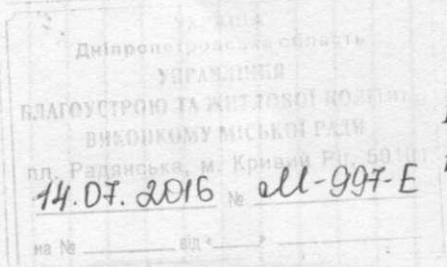 УКРАЇНА
Дніпропетровська область
УПРАВЛІННЯ
БЛАГОУСТРОЮ ТА ЖИТЛОВОЇ ПОЛІТИКИ
ВИКОНКОМУ МІСЬКОЇ РАДИ
пл. Радянська, м. Кривий Ріг, 50101
14.07.2016 № М-997-Е
на № від « »